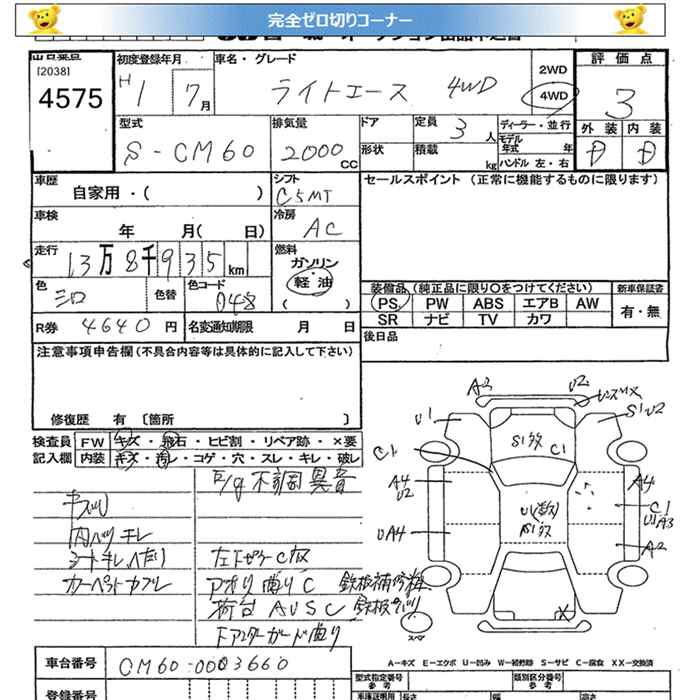 完全ゼロ切りコーナー
[2038]
4575
初度登録年月
H 1 7月
車名・グレード
ライトエース 4WD
2WD
4WD
評価点
3
外装 内装
D D
型式
S-CM60
排気量
2000 CC
ドア
形状
定員 3 人
積載 kg
ディーラー・並行
モデル年式 年
ハンドル 左・右
車歴
自家用・( )
シフト
C5MT
セールスポイント (正常に機能するものに限ります)
車検
年 月( 日)
冷房
AC
走行
13万8千935km
燃料
ガソリン・
軽油
( )
色
シロ
色替
色コード
048
装備品(純正品に限り○をつけてください)
新車保証書
PS PW ABS エアB AW
SR ナビ TV カワ
有・無
R券 4640円
名変通知期限 月 日
後日品
注意事項申告欄(不具合内容等は具体的に記入して下さい)
修復歴 有〔箇所 〕
検査員
記入欄
FW キズ・飛石・ヒビ割・リペア跡・×要
内装 キズ・汚レ・コゲ・穴・スレ・キレ・破レ
E/g 不調 異音
内ハリキレ
シートキレ
カーペット
アオリ曲り C
荷台 AUSC
ドアミラーガード曲り
A3
U2
U1
S1U2
C1
S1
C1
A4
U2
A4
C1
U1A3
UA4
A2
スペア
A-キズ E-エクボ U-凹み W-補修跡 S-サビ C-腐食 XX-交換済
車台番号
CM60-0003660
登録番号
型式指定番号
参考
類別区分番号
参考
車庫証明用
長さ